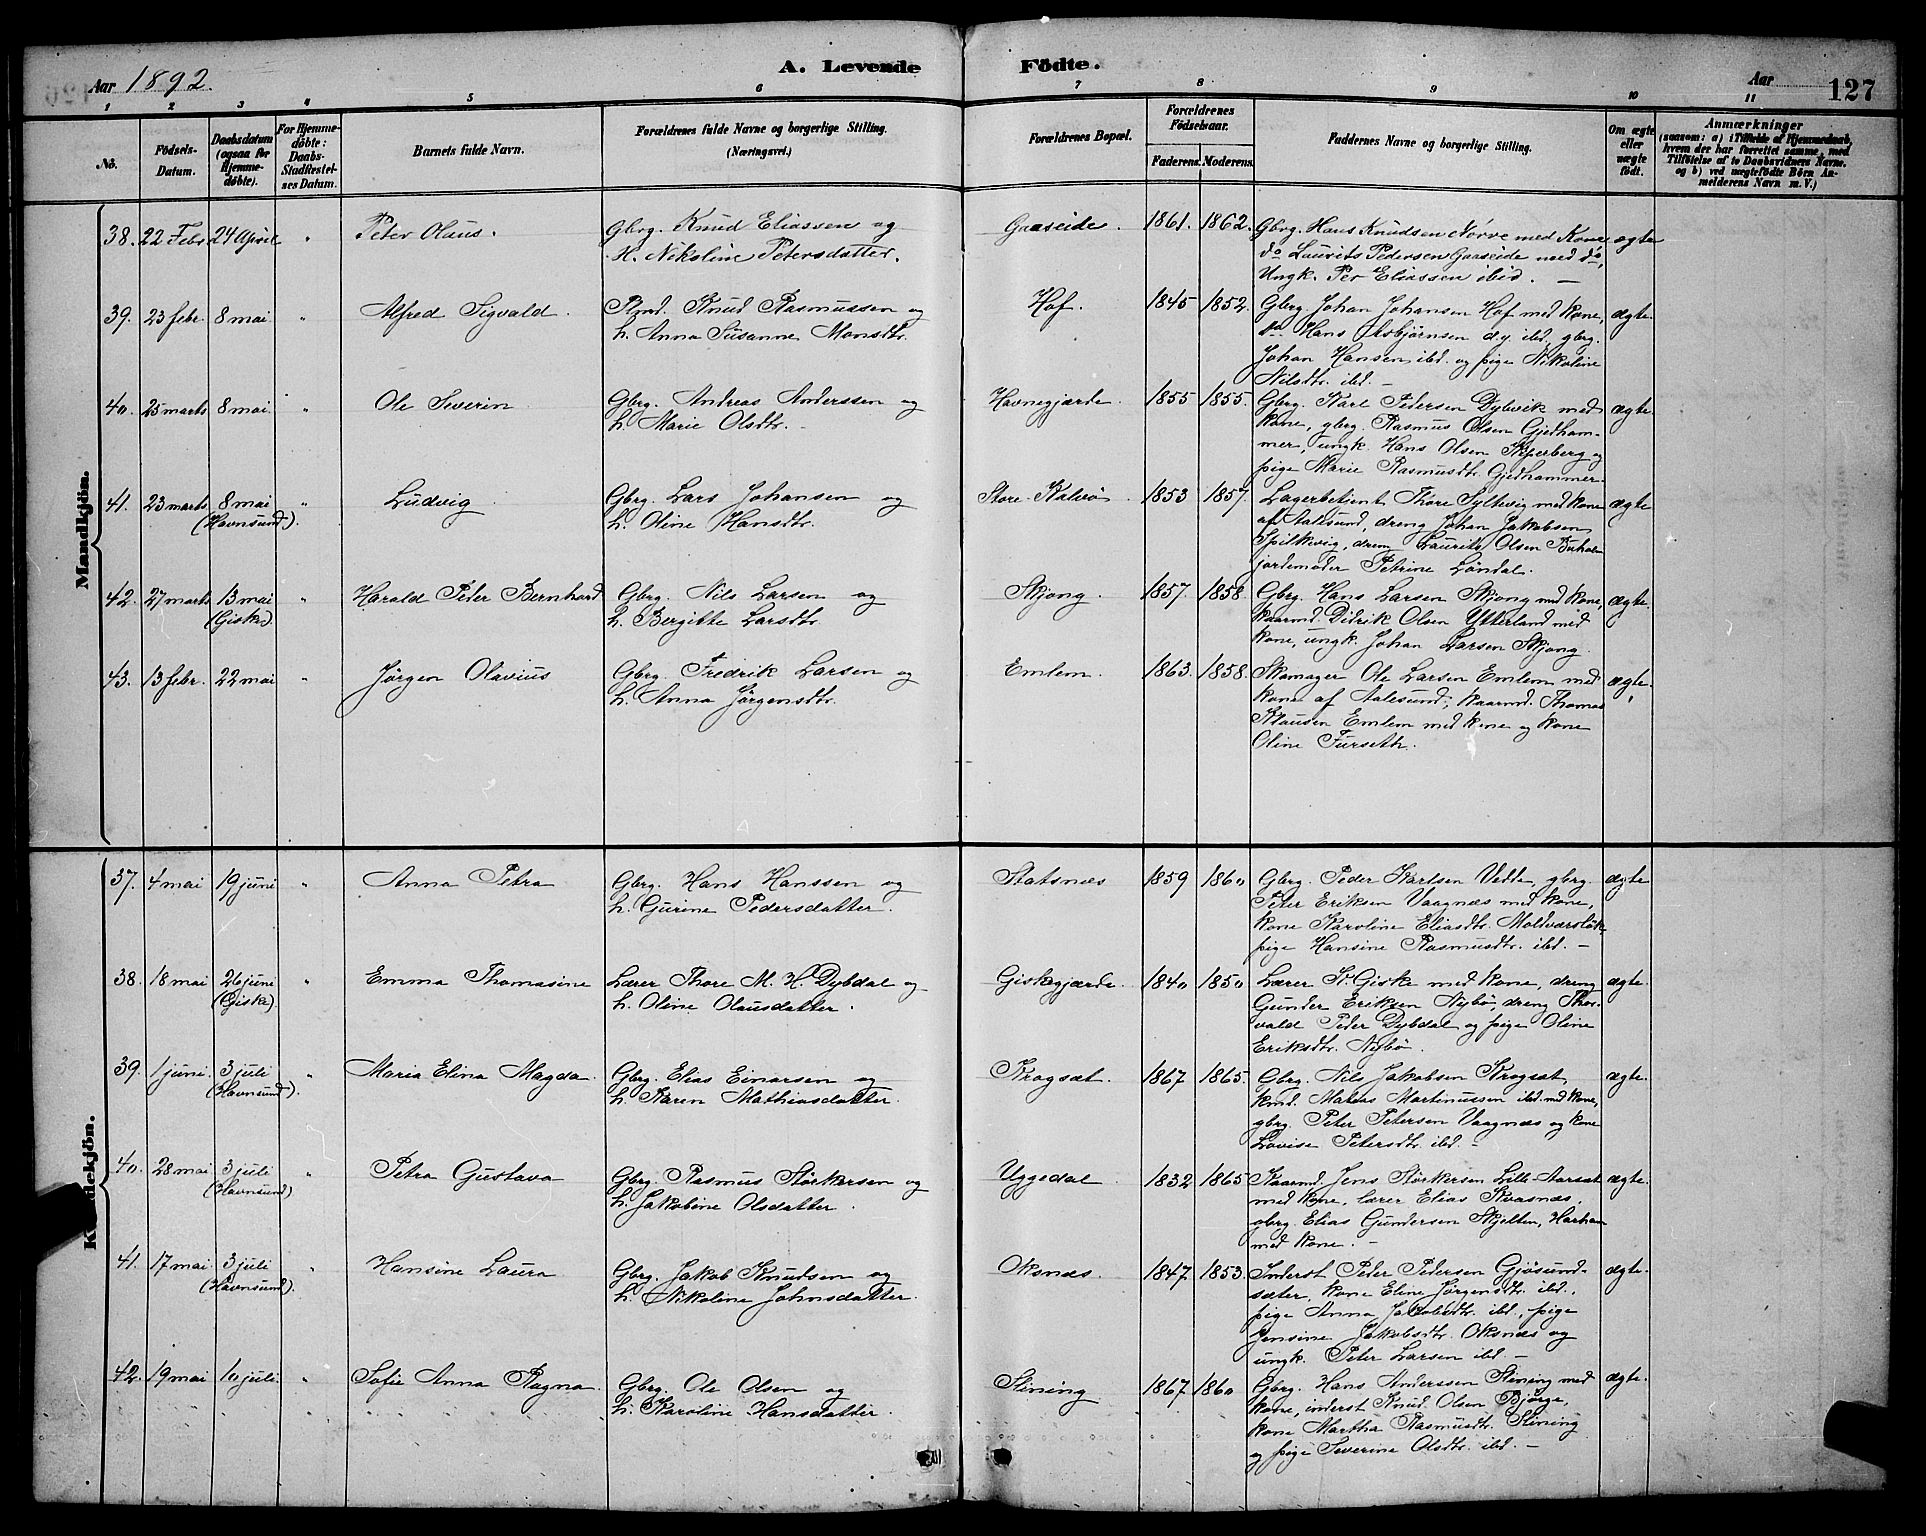 Aar 1892.
A. Levende Födte.
Aar 127
1 2 3 4 5 6 7 8 9 10 11
No.
Födsels-Datum.
Daabsdatum (ogsaa for Hjemmedøbte).
For Hjemmedøbte: Daabs-Stadfæstelses Datum.
Barnets fulde Navn.
Forældrenes fulde Navne og borgerlige Stilling. (Næringsvei.)
Forældrenes Bopæl.
Forældrenes Fødselsaar.
Faderens. Moderens.
Faddernes Navne og borgerlige Stilling.
Om ægte eller uægte født.
Anmærkninger
(saasom: a) i Tilfælde af Hjemmedaab, hvem der har forrettet samme, med Tilföielse af to Daabsvidners Navne. og b) ved uægtefödte Börn Anmelderens Navn m. V.)
Mandkjön.
38. 22 Febr 24 April " Peter Olaus. Gbrg. Knud Eliassen og Gaaseide. 1861. 1862. Gbrg. Hans Knudsen Nørve med Kone, ægte
H. Nikoline Petersdatter. do Laurits Pedersen Gaaseide med do,
Ungk. Per Eliassen ibid. —
39. 23 febr. 8 mai " Alfred Sigvald. Strnd. Knud Rasmussen og Hof. 1845 1852. Gbrg Johan Johansen Hof med kone, ægte.
h. Anna Susanne Monsdtr. do Hans Asbjørnsen d.y. ibd, gbrg.
Johan Hansen ibd. og pige Nikoline
Nilsdtr. ibd. —
40. 25 marts 8 mai " Ole Severin Gbrg. Andreas Anderssen og Havnegjærde. 1855 1855. Gbrg. Karl Pedersen Dybvik med ægte.
h. Marie Olsdtr. kone, gbrg. Rasmus Olsen Gjedham-
mer, ungk. Hans Olsen og
pige Marie Rasmusdtr. Gjedhammer.
41. 23 marts 8 mai " Ludvig Gbrg. Lars Johansen og Store Kalvø. 1853 1857. Lagerbetjent Thore Syltevig med kone ægte
(Havnsund). h. Oline Hansdtr. af Aalesund, dreng Johan Jakobsen
Spilkevig, dreng Laurits Olsen
jordemoder Petrine Løndal.
42. 27 marts 13 mai " Harald Peder Bernhard Gbrg. Nils Larsen og Skjong. 1857. 1858. Gbrg. Hans Larsen Skjong med kone, ægte.
(Giske). h. Bergitte Larsdtr. kaarmd. Didrik Olsen Ytterland med
kone, ungk. Johan Larsen Skjong.
43. 13 febr. 22 mai " Jørgen Olavius Gbrg. Fredrik Larsen og Emlem. 1863. 1858. Skomager Ole Larsen Emlem med ægte.
h. Anna Jørgensdtr. kone af Aalesund, kaarmd. Thomas
Klausen Emlem med kone og kone
Oline Furseth.
Kvindekjön.
37. 4 mai 19 juni " Anna Petra Gbrg. Hans Hanssen og Statsnæs 1859 1860 Gbrg. Peder Karlsen Vedde, gbrg. ægte
h. Gurine Pedersdatter. Peter Eriksen Vaagnæs med kone,
kone Karoline Eliasdtr.
pige Hansine Rasmusdtr. ibd. —
38. 18 mai 26 juni " Emma Thomasine Lærer Thore M. H. Dybdal og Giskegjærde. 1840 1850 Lærer St. Giske med kone, dreng ægte.
(Giske). h. Oline Olausdatter. Gunder Eriksen Nybø, dreng Thor-
vald Peder Dybdal og pige Oline
Eriksdtr. Nybø.
39. 1 juni. 3 juli " Maria Elina Magda. Gbrg. Elias Einarsen og Krogsæt. 1867 1865. Gbrg. Nils Jakobsen Krogsæt, ægte.
(Havnsund). h. Karen Mathiasdatter. kmd. Matias Martinussen ibd. med kone,
gbrg. Peter Petersen Vaagnæs og kone
Lovise Petersdtr. ibd. —
40. 28 mai 3 juli " Petra Gustava Gbrg. Rasmus Størkersen og Uggedal 1832 1865 Kaarmd. Jens Størkersen Lille Aarsæt ægte.
(Havnsund) h. Jakobine Olsdatter. med kone, lærer Elias Kvasnæs,
gbrg. Elias Gundersen Skjelten, Harham
med kone. —
41. 17 mai 3 juli " Hansine Laura Gbrg. Jakob Knudsen og Oksnæs. 1847. 1853. Inderst Peder Pedersen Gjøsund- ægte.
(Havnsund). h. Nikoline Johnsdatter. sæter, kone Eline Jørgensdtr. ibd.,
pige Anna Jakobsdtr. ibd., pige
Jensine Jakobsdtr. Oksnæs og
ungk. Peter Larsen ibd. —
42. 19 mai 10 juli. " Sofie Anna Ragna. Gbrg. Ole Olsen og Slining 1867 1860 Gbrg. Hans Anderssen Slining med ægte.
h. Karoline Hansdatter. kone, inderst Knud Olsen Bjørge,
kone Martha Rasmusdtr. Slining
og pige Severine Olsdtr. ibd. —